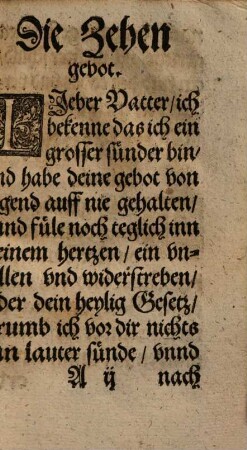 Die Zehen
gebot.
LJeber Vatter/ich
bekenne das ich ein
grosser sünder bin/
nd habe deine gebot von
gend auff nie gehalten/
und füle noch teglich inn
einem hertzen/ein vn-
llen vnd widerstreben/
der dein heylig Gesetz/
rumb ich vor dir nichts
nn lauter sünde/vnnd
A ij nach